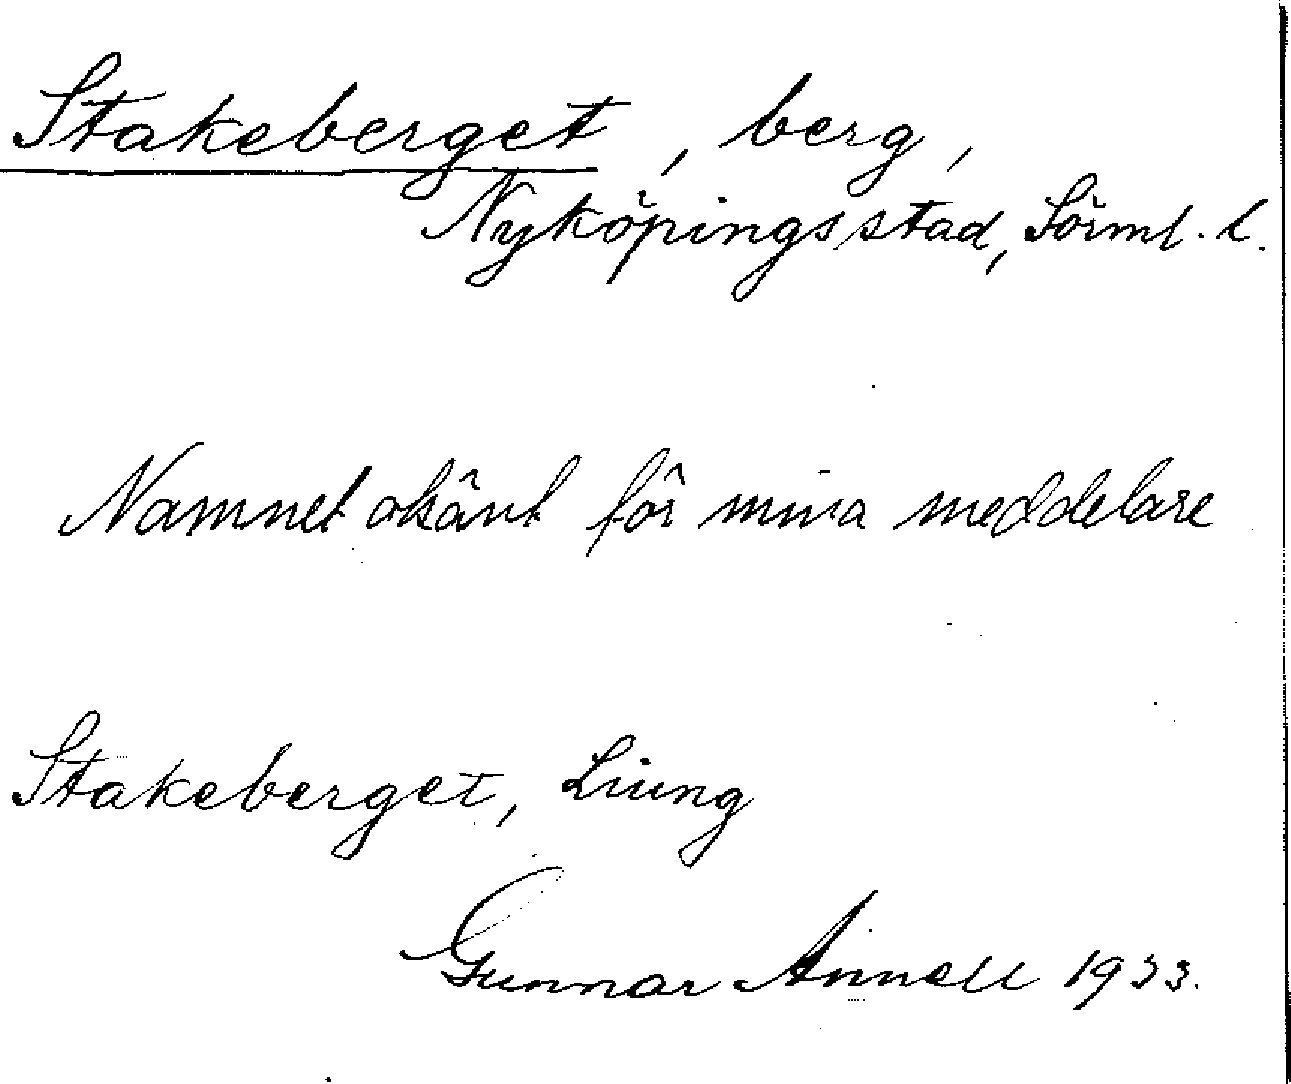 Stakeberget, berg,
Nyköpings stad, Sörml. l.
Namnet okänt för mina meddelare
Stakeberget, Liung
Gunnar Annell 1933.